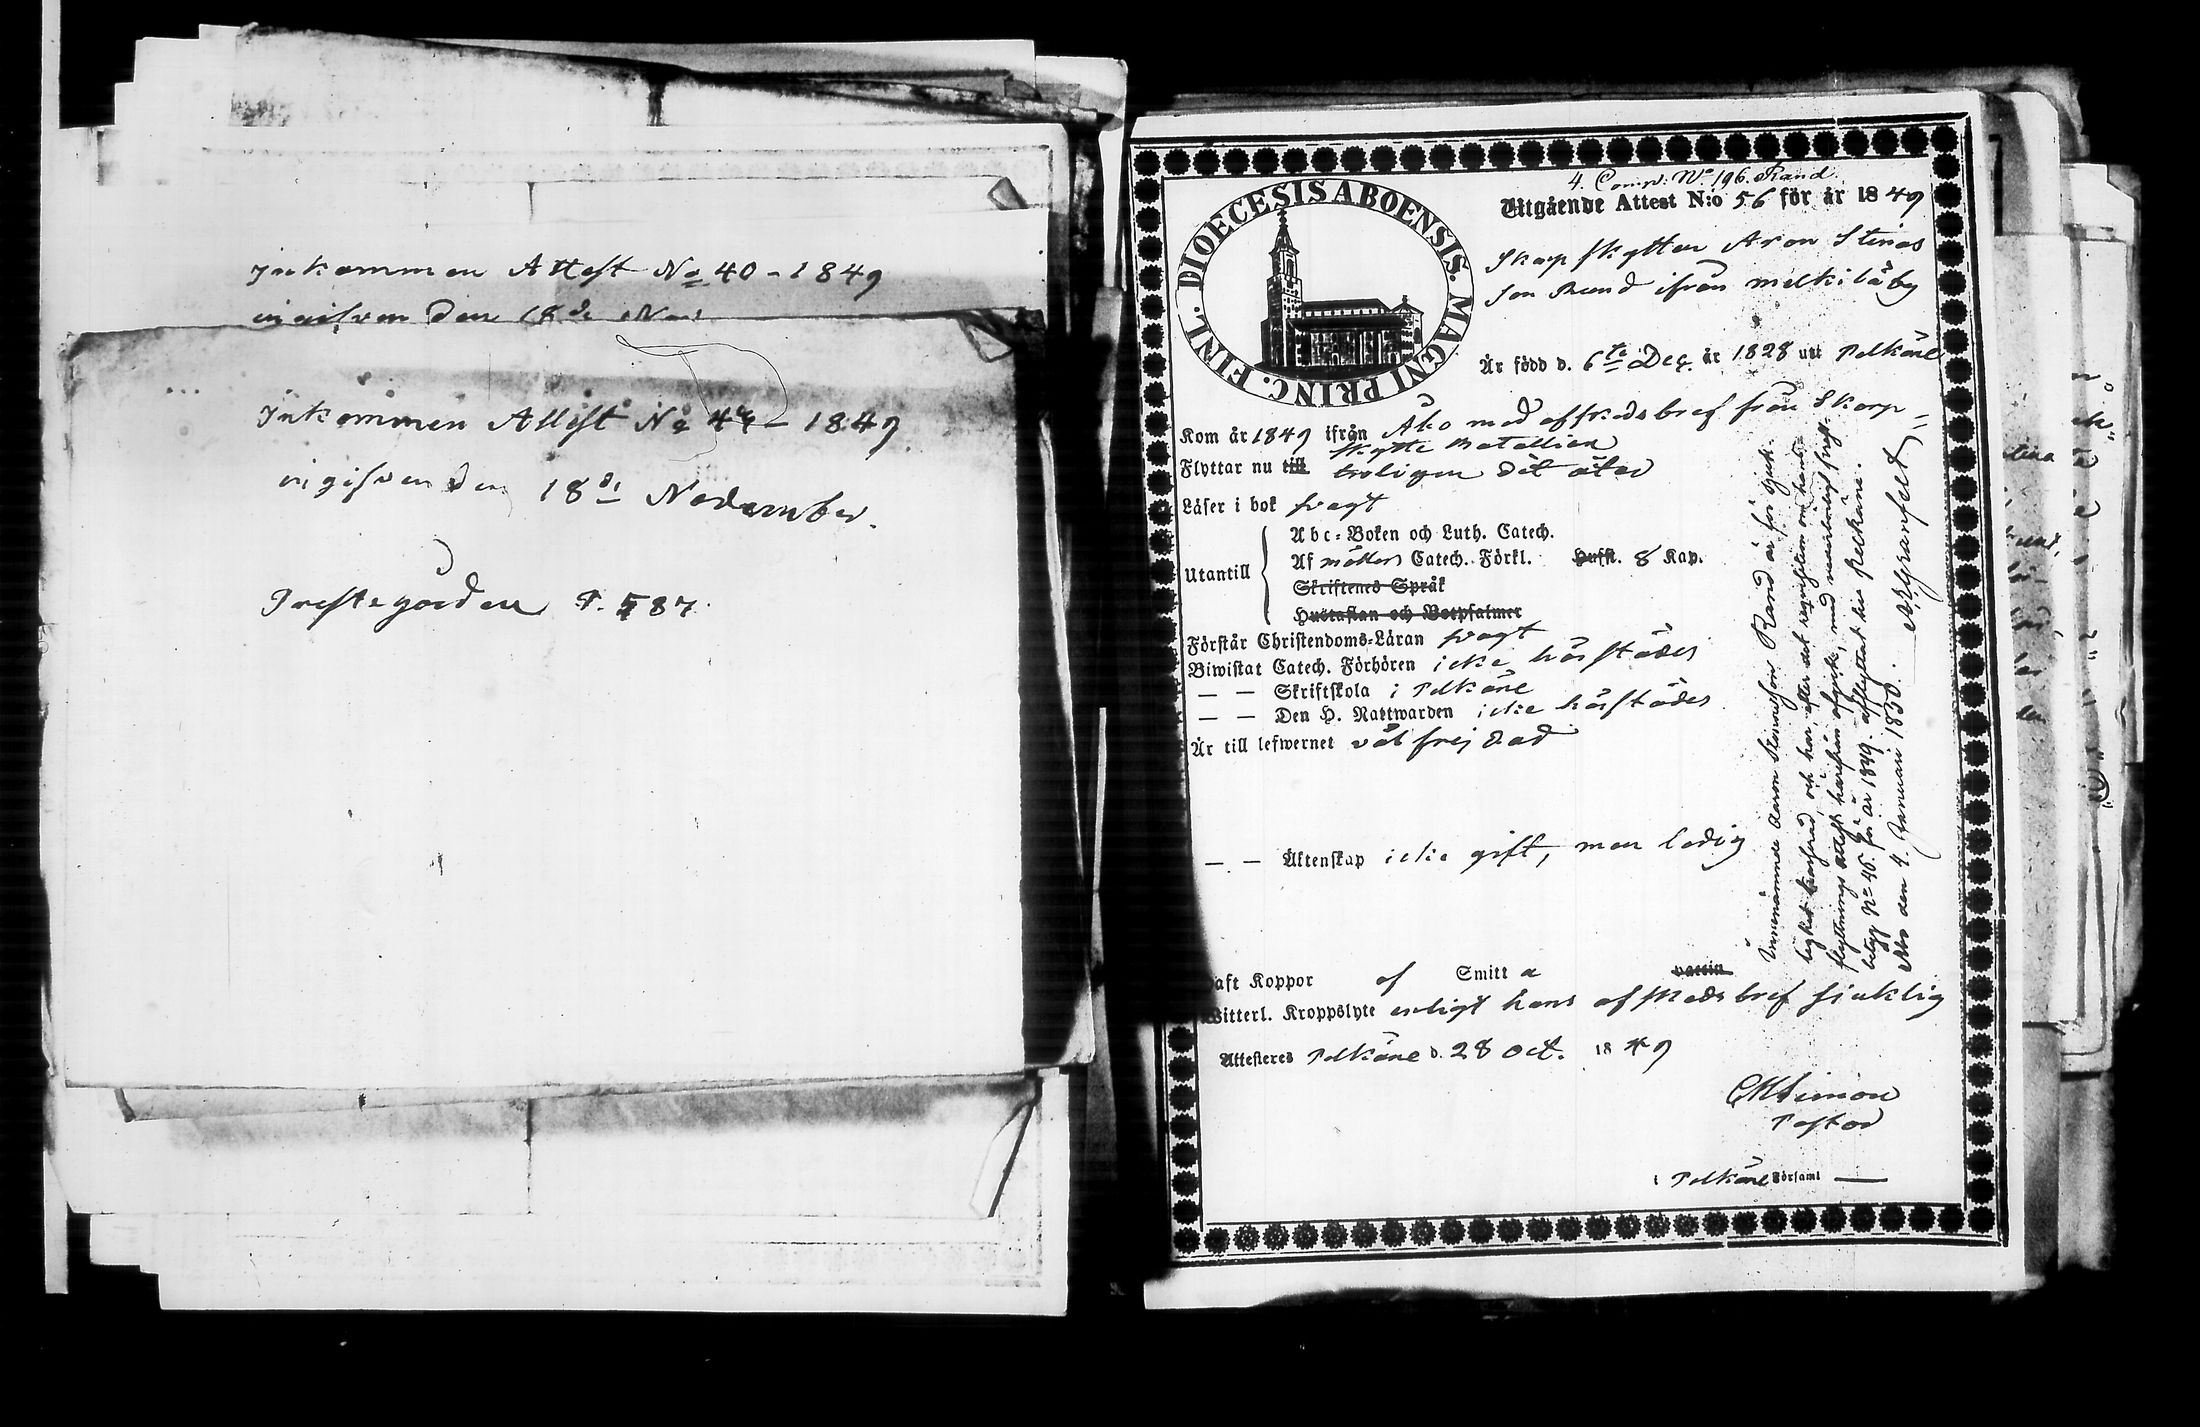 Inkommen Attest No 40 - 1849
ingifven den 18de Nov
Inkommen Attest No - 1849.
ingifven den 18de November.
Prestegården P. 587.
DIOECESIS ABOENSIS. MAGNI PRINC. FINL.
4. Comp. No 196. Rand
Utgående Attest N:o 56 för år 1849
Skarpskytten Aron Stinas
son Rand ifrån Mälkiläby
Är född d. 6te Dec. år 1828 uti Pelkäne
Kom år 1849 ifrån Åbo med afskedsbref från Skarp-
skytte Bataillon
Flyttar nu till troligen dit åter
Läser i bok svagt
Utantill
Abc-Boken och Luth. Catech.
Af Möllers Catech. Förkl. Hufst. 8 Kap.
Skriftenes Språk
Hustaflan och Botpsalmer
Förstår Christendoms-Läran svagt
Biwistat Catech. Förhören icke härstädes
— — Skriftskola i Pelkäne
— — Den H. Nattwarden icke härstädes
Är till lefwernet välfrejdad
— — Äktenskap icke gift, men ledig
aft Koppor af Smitta vaccin
Witterl. Kroppslyte enligt hans afskedsbref sjuklig
Attesteras Pelkäne d. 28 Oct. 1849
Simon
Pastor
i Pelkäne Församl
Innenämnde Aaron Stinasson Rand är för sjuk-
lighet kasserad, och har, efter det requisition om hans
flyttnings attest härifrån afgått, med
betyg No 46 för år 1849 afflyttat till Pelkäne.
Åbo den 4. Januari 1850. Granfelt